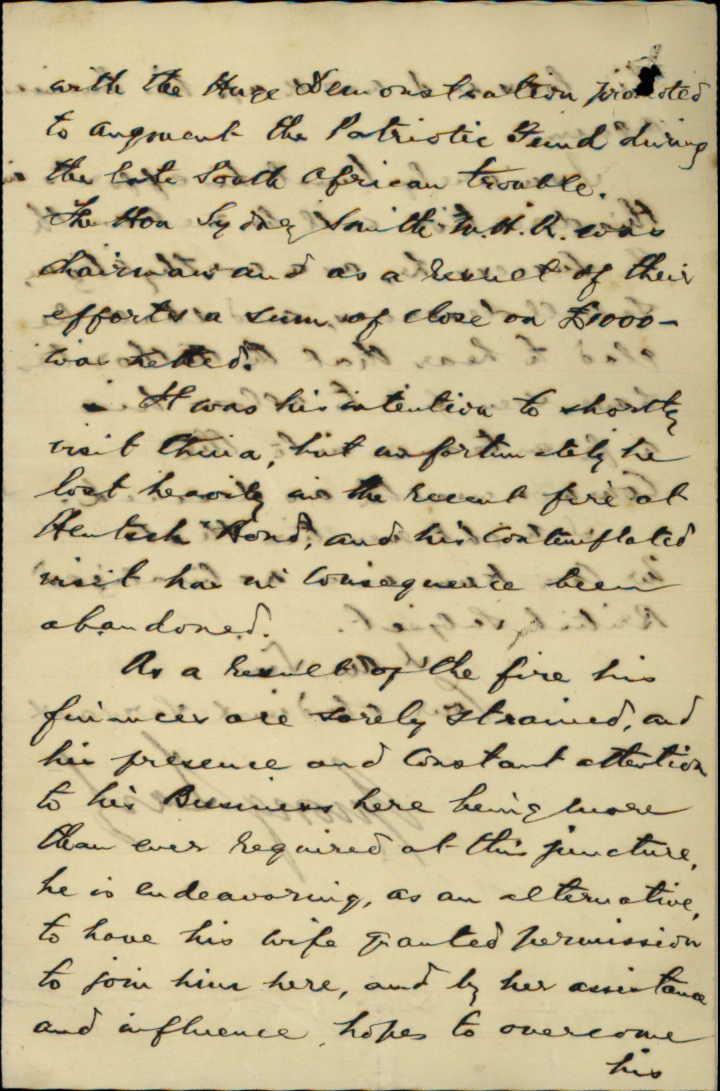 with the Huge Demonstration promoted
to augment the Patriotic Fund during
the late South African trouble.
The Hon Sydney Smith M.H.R. was
chairman and as a result of their
efforts a sum of close on £1000-
was netted.
It was his intention to shortly
visit China, but unfortunately he
lost heavily in the recent fire at
Bond, and his contemplated
visit has in consequence been
abandoned.
As a result of the fire his
finances are sorely strained, and
his presence and constant attention
to his Business here being more
than ever required at this juncture,
he is endeavoring, as an alternative,
to have his wife granted permission
to join him here, and by her assistance
and influence, hopes to overcome
his